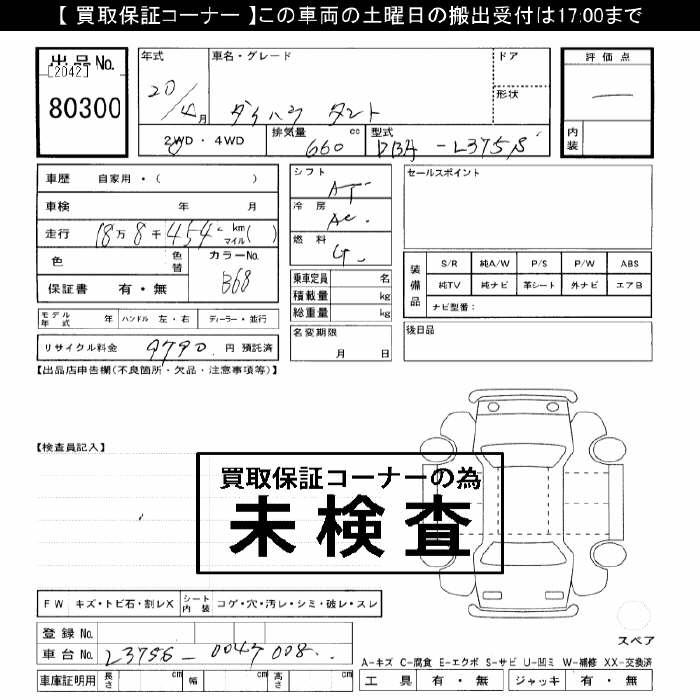 【 買取保証コーナー 】この車両の土曜日の搬出受付は17:00まで
出品No.
[2042]
80300
年式
20/4月
車名・グレード
ダイハツ タント
ドア
形状
評価点
内装
2WD・4WD
排気量 660 cc
型式 DBA-L375S
車歴 自家用・( )
車検 年 月
走行 18万8千454 km マイル( )
色 色替 カラーNo. B68
保証書 有・無
シフト AT
冷房 AC
燃料 G
乗車定員 名
積載量 kg
総重量 kg
名変期限 月 日
セールスポイント
装備品
S/R 純A/W P/S P/W ABS
純TV 純ナビ 革シート 外ナビ エアB
ナビ型番:
後日品
モデル年式 年 ハンドル 左・右 ディーラー・並行
リサイクル料金 9790 円 預託済
【出品店申告欄(不良箇所・欠品・注意事項等)】
【検査員記入】
買取保証コーナーの為
未検査
FW キズ・トビ石・割レX シート内装 コゲ・穴・汚レ・シミ・破レ・スレ
登録No.
車台No. L375S-0047008
車庫証明用 長さ cm 幅 cm 高さ cm
スペア
A-キズ C-腐食 E-エクボ S-サビ U-凹ミ W-補修 XX-交換済
工具 有・無 ジャッキ 有・無